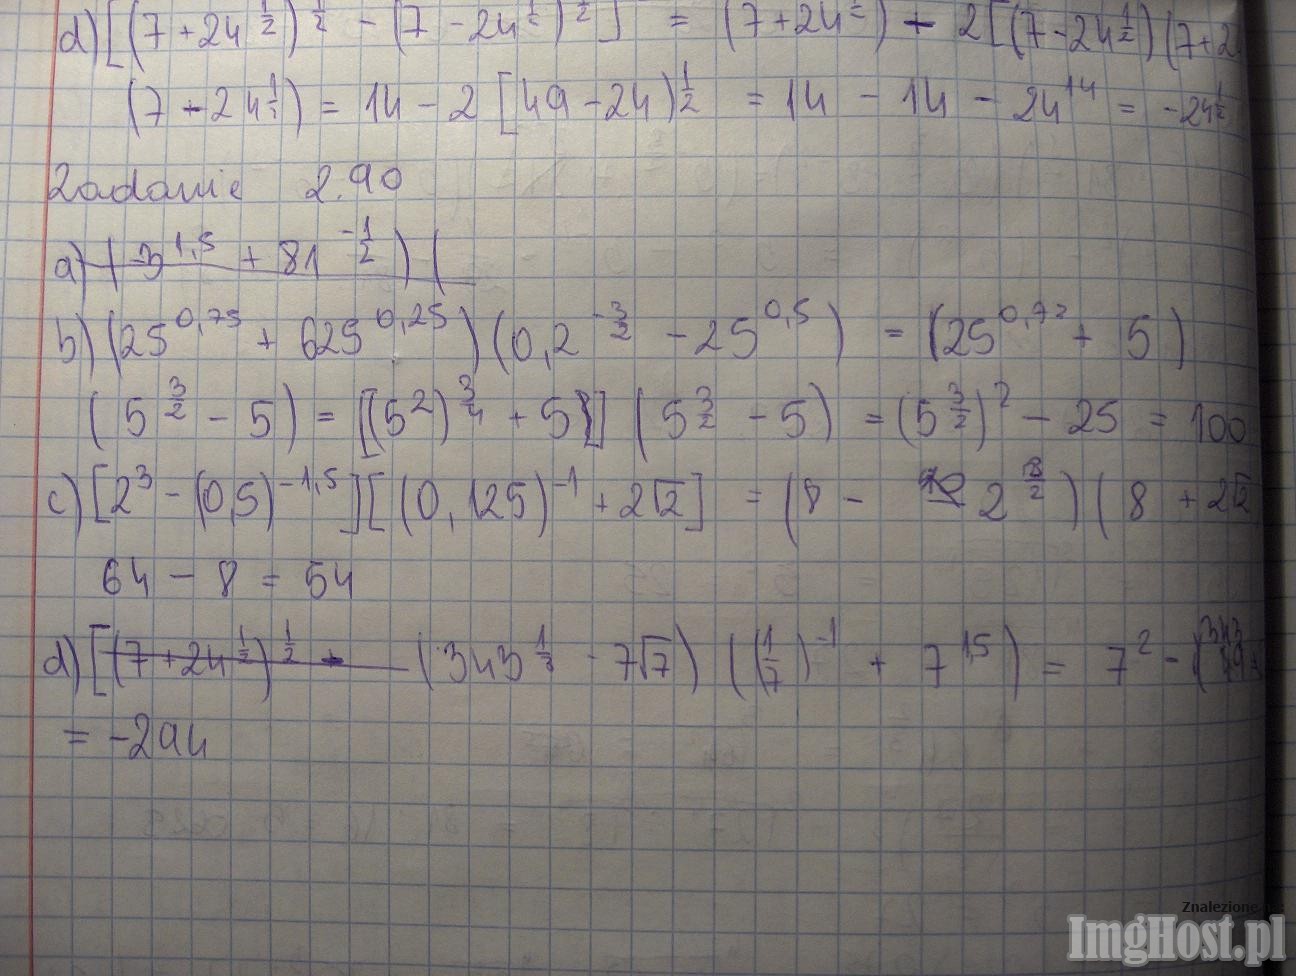 d) [(7 + 24^{1/2})^{1/2} - (7 - 24^{1/2})^{1/2}] = (7 + 24^{1/2}) - 2[(7 - 24^{1/2})(7 + 2
(7 - 24^{1/2}) = 14 - 2 [49 - 24)^{1/2} = 14 - 14 - 24^{14} = -24^{1/2}
Zadanie 2.90
a) (3^{1,5} + 81^{-1/2}) (
b) (25^{0,75} + 625^{0,25}) (0,2^{-3/2} - 25^{0,5}) = (25^{0,72} + 5)
(5^{3/2} - 5) = [(5^2)^{3/4} + 5)] (5^{3/2} - 5) = (5^{3/2})^2 - 25 = 100
c) [2^3 - (0,5)^{-1,5}] [(0,125)^{-1} + 2√2] = (8 - 2^{3/2}) (8 + 2√2
64 - 8 = 54
d) [(7 + 24^{1/2})^{1/2} - (343^{1/3} - 7√7) ((1/7)^{-1} + 7^{1,5}) = 7^2 - (343
= -294
Znalezione
ImgHost.pl